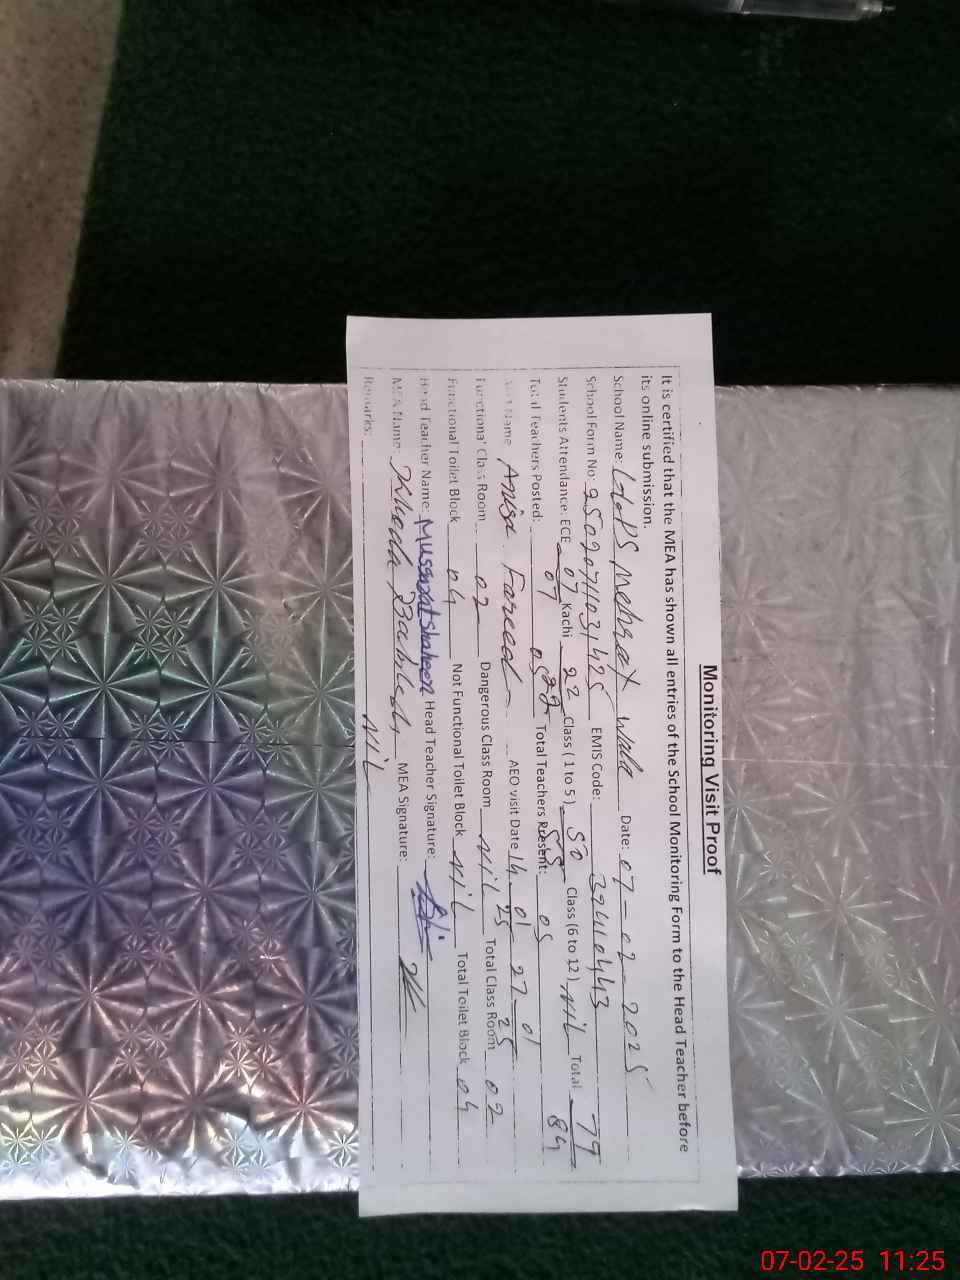 Monitoring Visit Proof
It is certified that the MEA has shown all entries of the School Monitoring Form to the Head Teacher before
its online submission.
School Name: GGPS Mehrat Wala Date: 07-02-2025
School Form No: EMIS Code: 39410443
Students Attendance: ECE 07 Kachi 22 Class (1 to 5) 50 Class (6 to 12) NIL Total 77
07 22 55 84
Total Teachers Posted: 05 Total Teachers Present: 05
Name Anisa Fareed AEO visit Date 14 01 25 27-01 25
Functional Class Room 02 Dangerous Class Room NIL Total Class Room 02
Functional Toilet Block 04 Not Functional Toilet Block NIL Total Toilet Block 04
Head Teacher Name: Mussarat Shaheen Head Teacher Signature:
MEA Name: Khuda Bakhsh MEA Signature:
Remarks: NIL
07-02-25 11:25